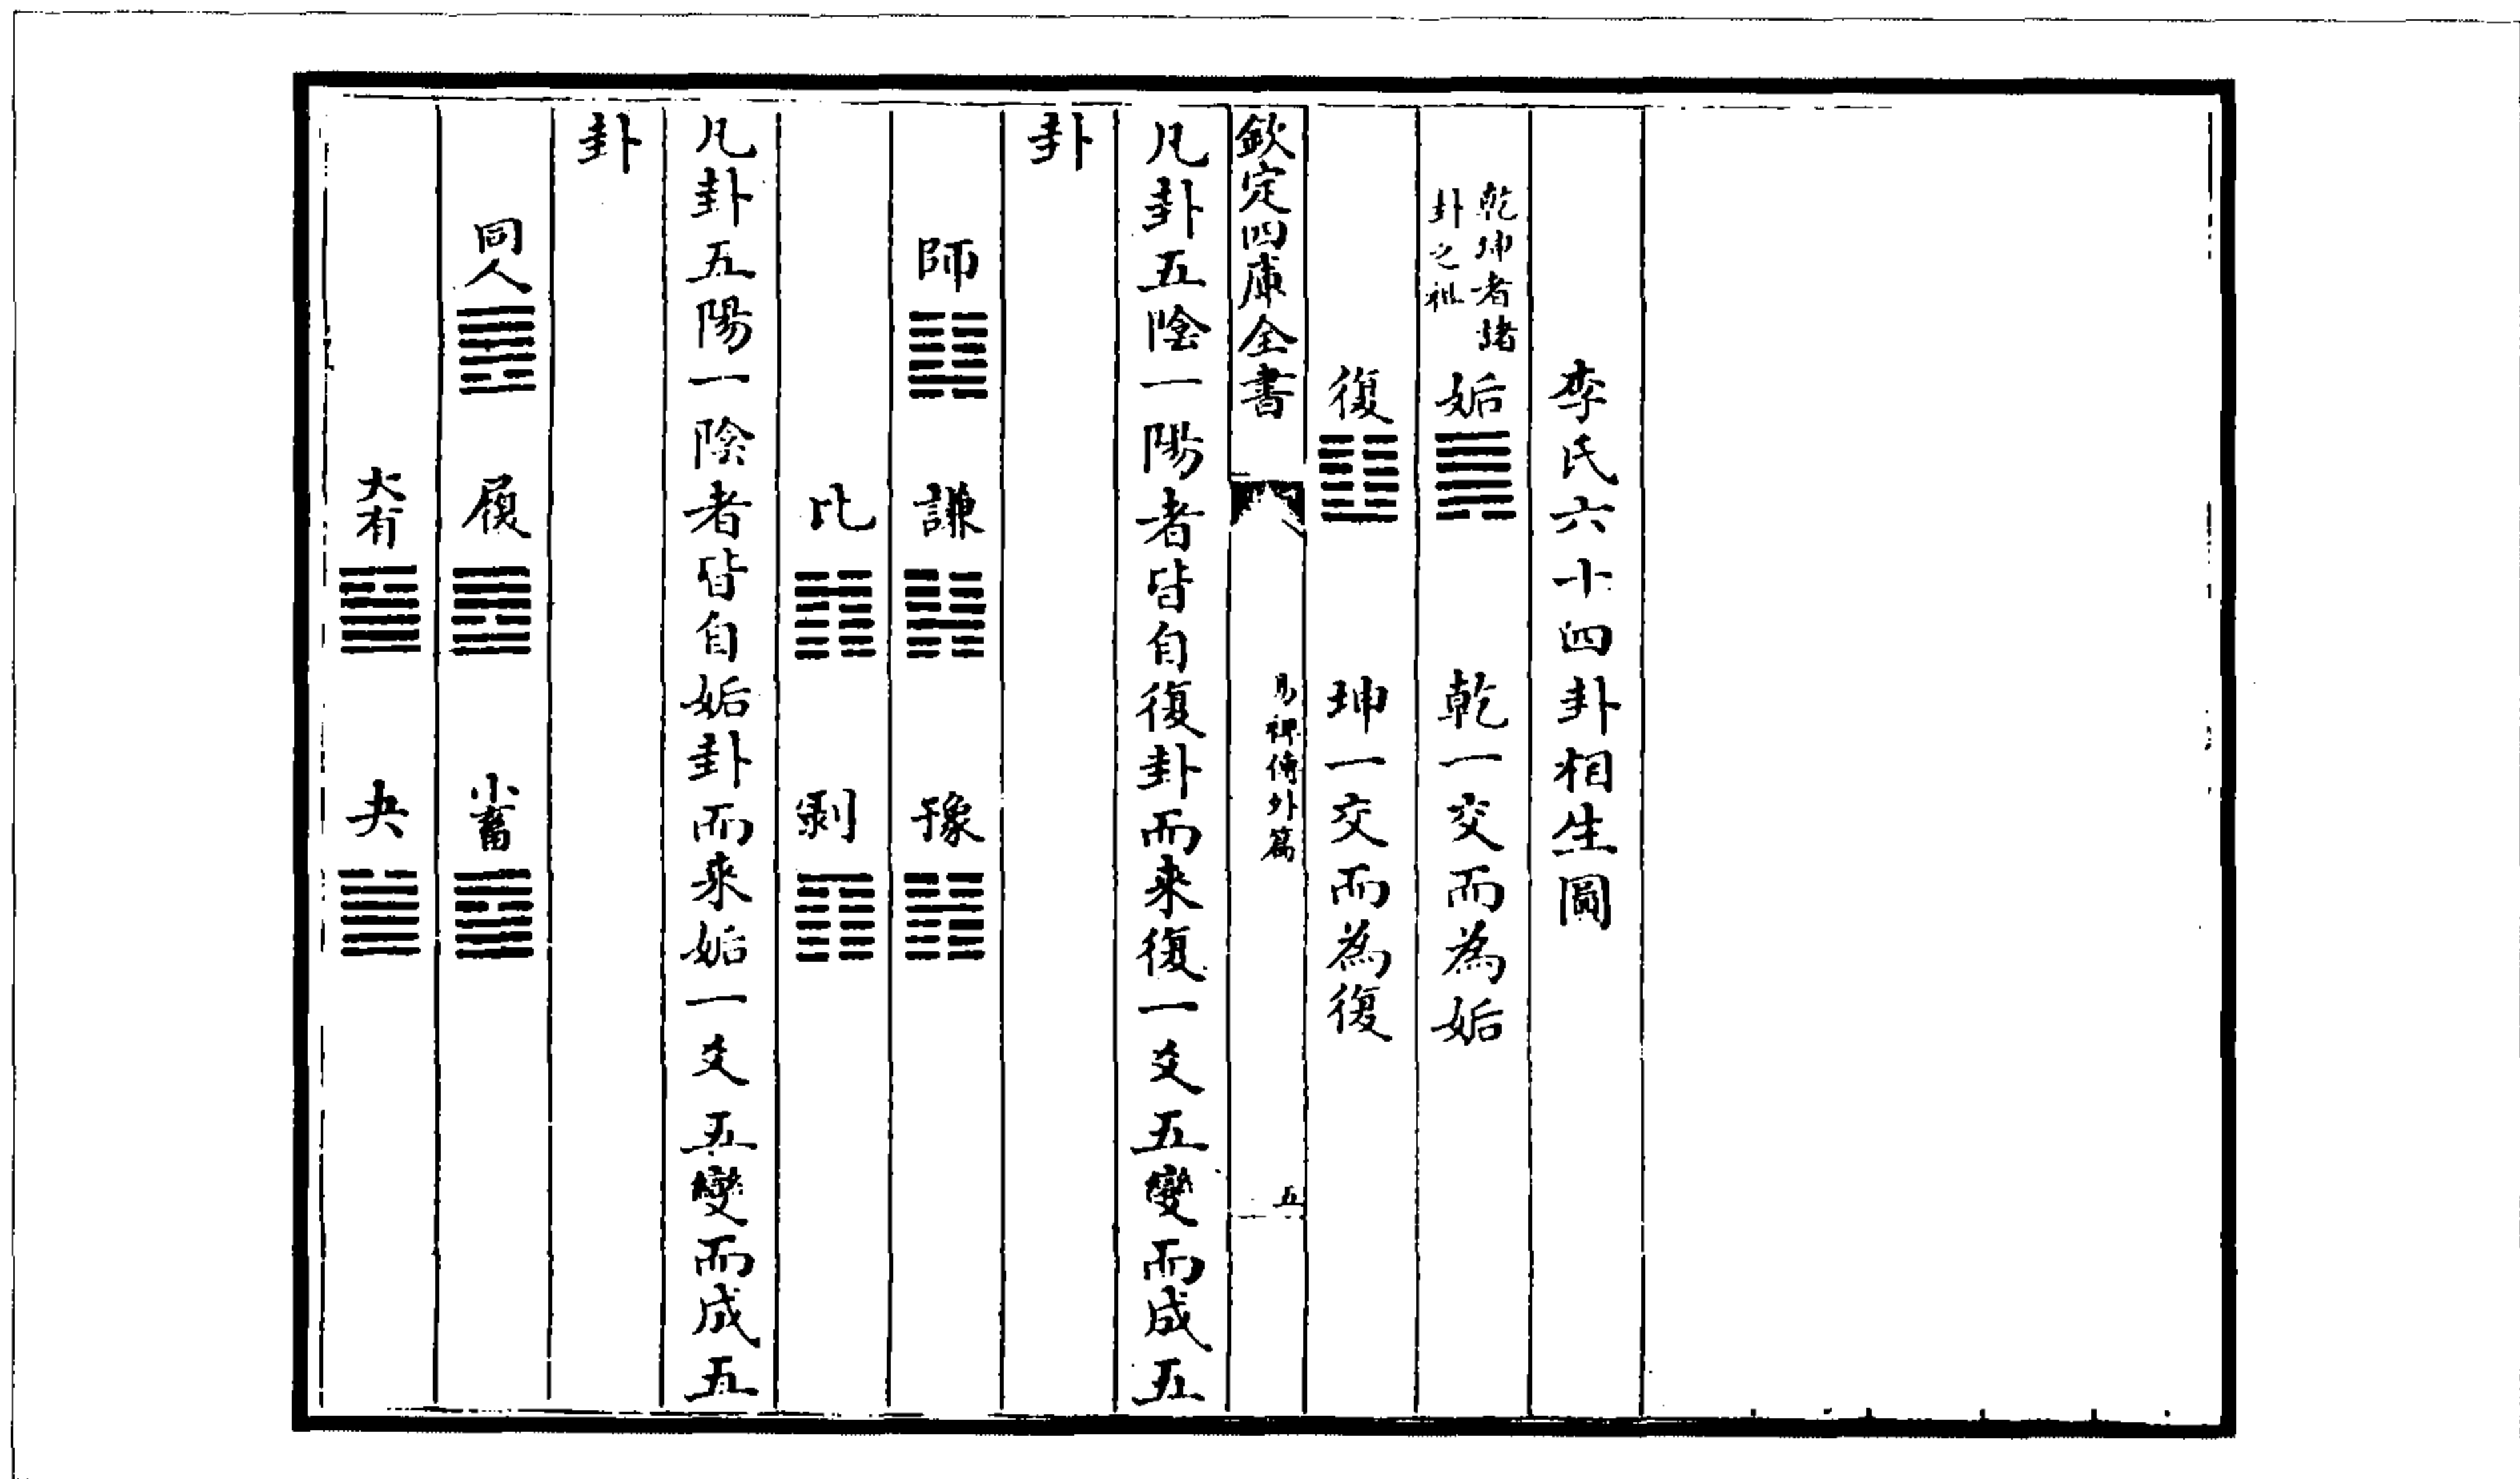 李氏六十四卦相生圖
乾坤者諸
卦之祖
姤 乾一交而為姤
復 坤一交而為復
欽定四庫全書
易裨傳外篇
五
凡卦五陰一陽者皆自復卦而來復一爻五變而成五
卦
師 謙 豫
比 剝
凡卦五陽一陰者皆自姤卦而來姤一爻五變而成五
卦
同人 履 小畜
大有 夬